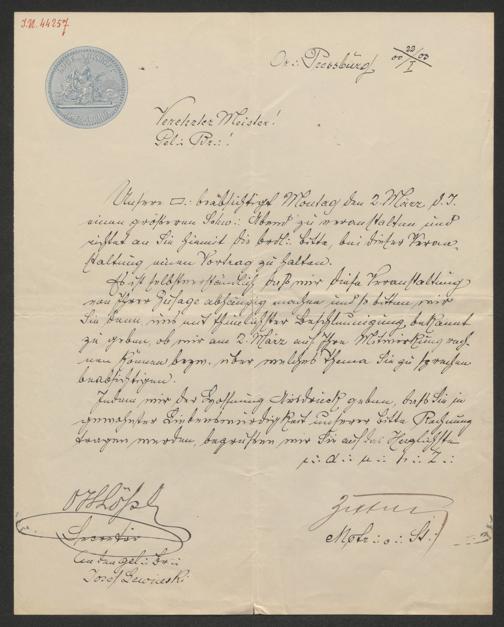 J.N. 44257
Or∴ Pressburg 22/I
Verehrter Meister!
Gel∴ Br∴!
Unsere □∴ beabsichtigt Montag den 2. März d. J.
einen größeren Schw∴ Abend zu veranstalten und
richtet an Sie hiemit die brdl∴ Bitte, bei dieser Veran-
staltung einen Vortrag zu halten.
Es ist selbstverständlich, daß wir diese Veranstaltung
von Ihrer Zusage abhängig machen und so bitten wir
Sie denn uns mit thunlichster Beschleunigung bekannt
zu geben, ob wir am 2. März auf Ihre Mitwirkung rech-
nen können bezw. über welches Thema Sie zu sprechen
beabsichtigen.
Indem wir der Hoffnung Ausdruck geben, daß Sie in
gewohnter Liebenswürdigkeit unserer Bitte Rechnung
tragen werden, begrüßen wir Sie auf das Herzlichste
i∴ d∴ u∴ h∴ Z∴
Secretär
Mstr∴ v∴ St∴